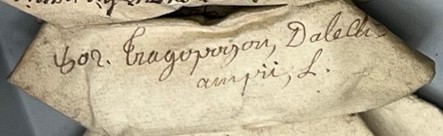 Hor. Tragoporon, Dalech-
ampii, L.